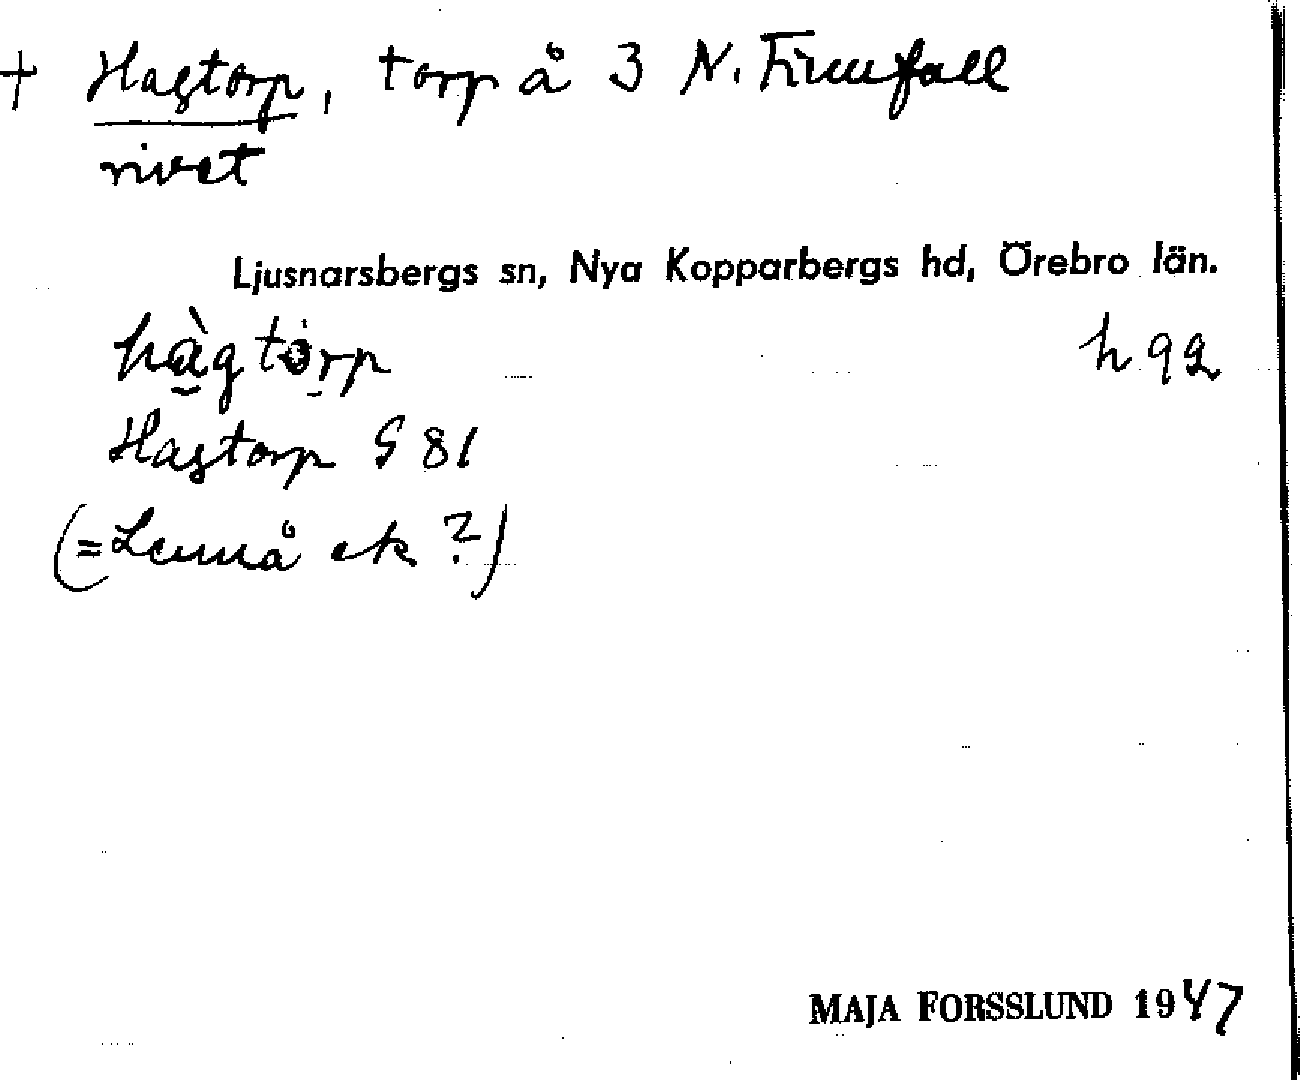 + Hagtorp, torp å 3 N. Finnfall
rivet
Ljusnarsbergs sn, Nya Kopparbergs hd, Örebro län.
hàgtòrp h 92
Hagtorp S 81
(=Lennå ek ?)
MAJA FORSSLUND 1947